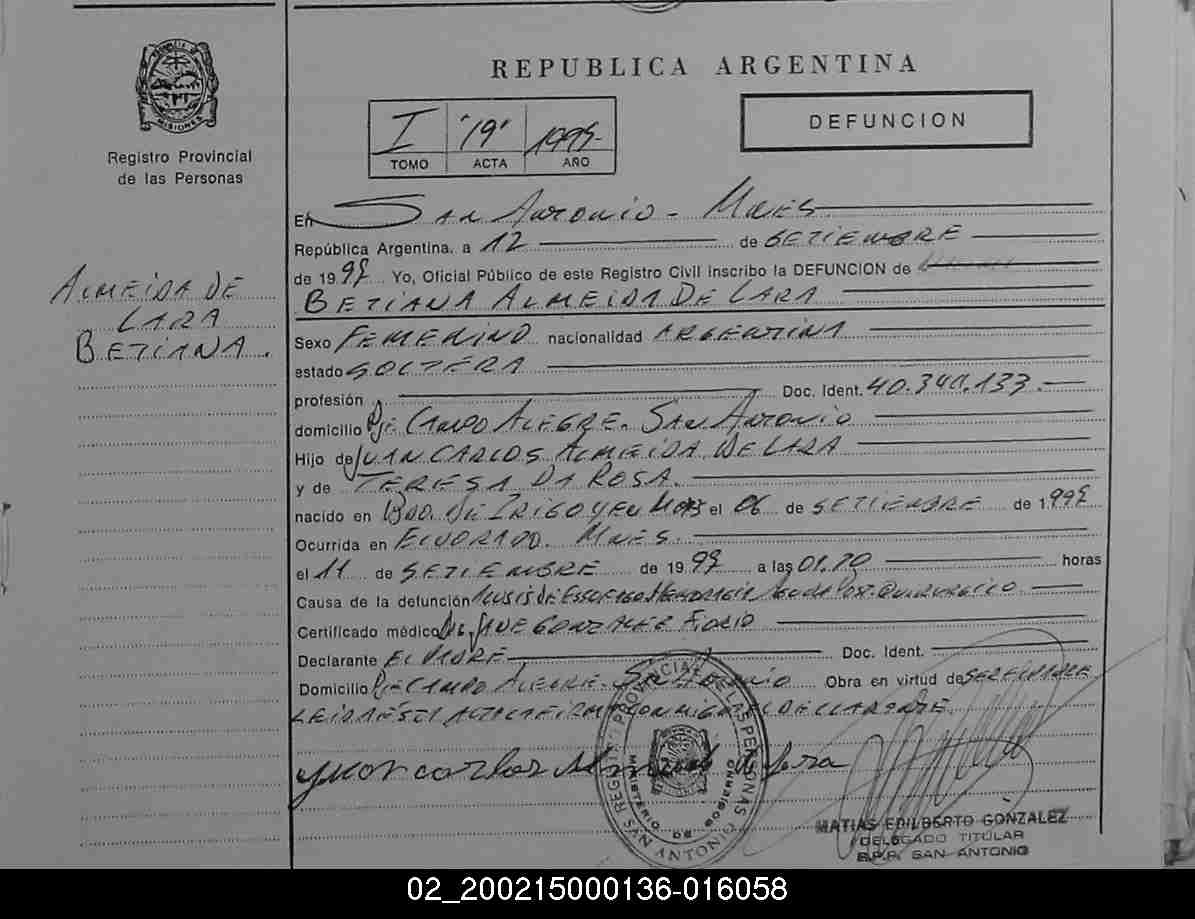 REPUBLICA ARGENTINA
MISIONES
Registro Provincial
de las Personas
DEFUNCION
I "19"
TOMO ACTA AÑO
En San Antonio - Mnes
República Argentina, a 12 de SETIEMBRE
de 19 Yo, Oficial Público de este Registro Civil inscribo la DEFUNCION de
BETIANA ALMEIDA DE LARA
ALMEIDA DE
LARA
BETIANA.
Sexo FEMENINO nacionalidad ARGENTINA
estado SOLTERA
profesión Doc. Ident. 40.340.133.
domicilio Pje CAMPO ALEGRE. SAN ANTONIO
Hijo de JUAN CARLOS ALMEIDA DE LARA
y de TERESA DA ROSA.
nacido en BDO. DE IRIGOYEN Mnes el 06 de SETIEMBRE de 1.99
Ocurrida en ELDORADO. MNES.
el 11 de SETIEMBRE de 19 a las 01.20 horas
Causa de la defunción AGUDA POST-QUIRURGICO.
Certificado médico GONZALEZ
Declarante EL PADRE Doc. Ident.
Domicilio Pje CAMPO ALEGRE. SAN ANTONIO Obra en virtud de SER EL PADRE
LEIDA ESTA ACTA LA FIRMA CONMIGO EL DECLARANTE.
Juan carlos Almeida de Lara
REGISTRO PROVINCIAL DE LAS PERSONAS
MINISTERIO DE GOBIERNO
SAN ANTONIO
MATIAS EDILBERTO GONZALEZ
DELEGADO TITULAR
R.P.P. SAN ANTONIO
02_200215000136-016058